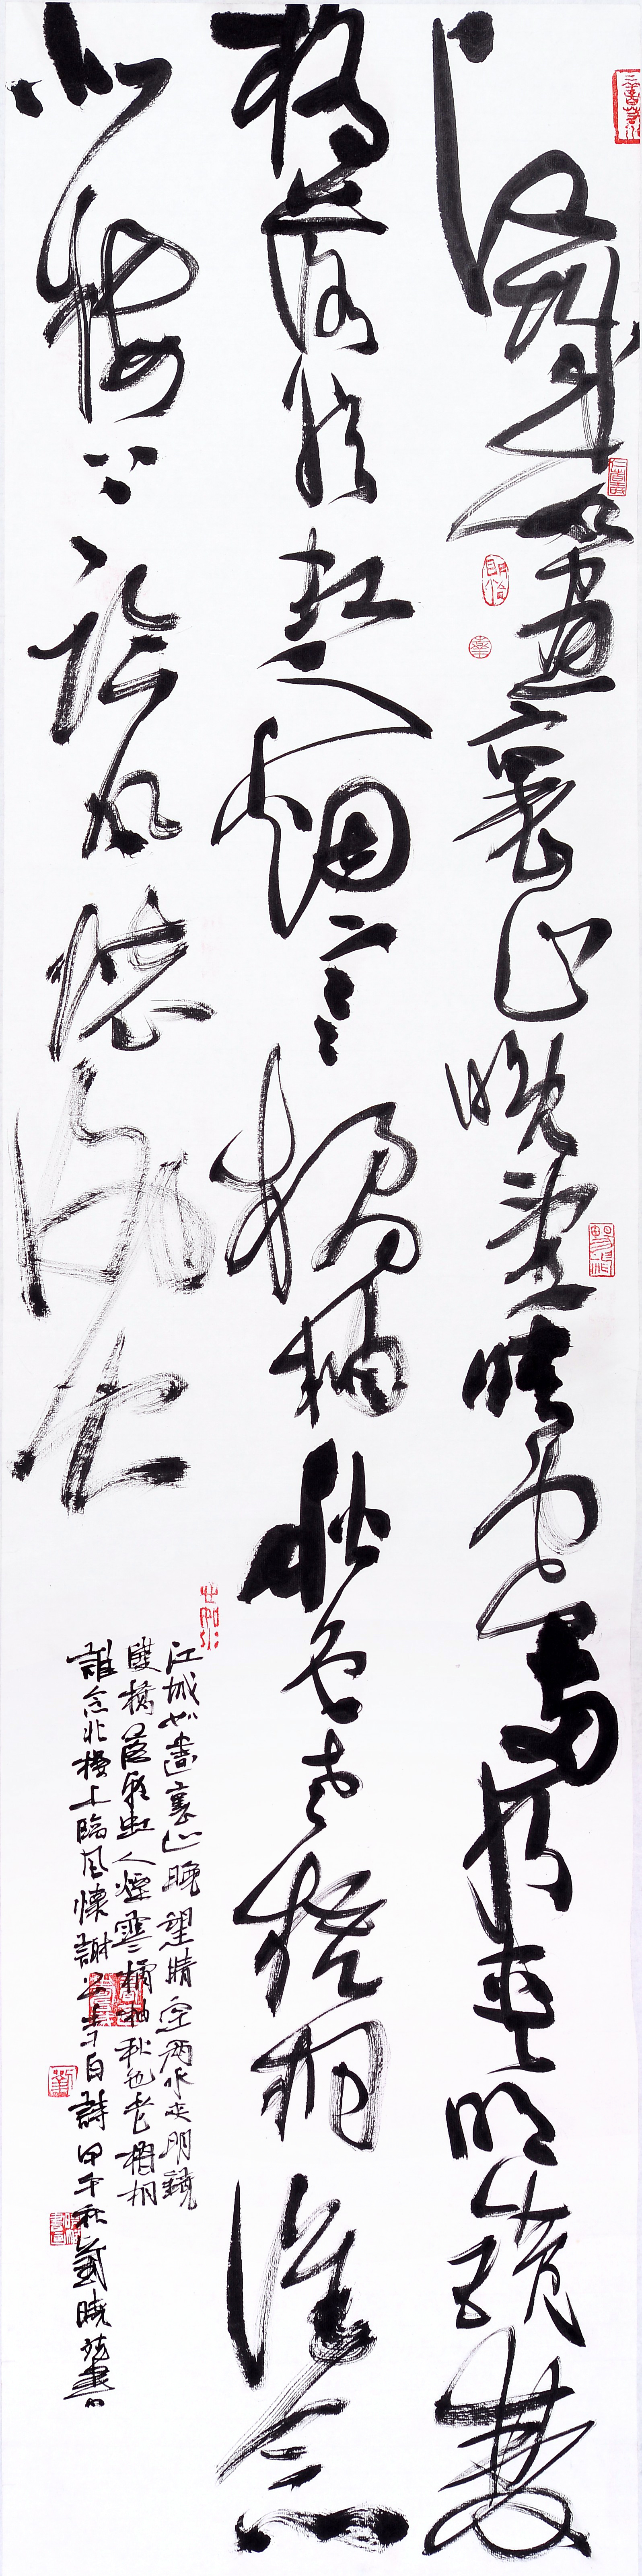 江城如畫裏山晚望晴空兩水夾明鏡雙
橋落彩虹人烟寒橘柚秋色老梧桐誰念
北樓上臨風懷謝公
江城如畫裏山晚望晴空兩水夾明鏡
雙橋落彩虹人煙寒橘柚秋色老梧桐
誰念北樓上臨風懷謝公李白詩甲午秋曉書
仁者壽